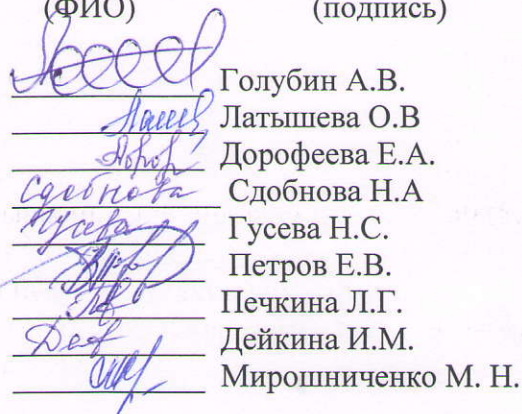 (ФИО) (подпись)
Голубин А.В.
Латышева О.В
Дорофеева Е.А.
Сдобнова Сдобнова Н.А
Гусева Гусева Н.С.
Петров Е.В.
Печкина Л.Г.
Дейкина И.М.
Мирошниченко М. Н.